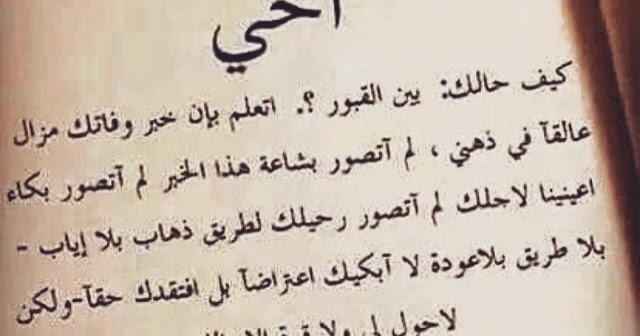 أخي
كيف حالك: بين القبور ؟. اتعلم بإن خبر وفاتك مزال
عالقآ في ذهني ، لم آتصور بشاعة هذا الخبر لم آتصور بكاء
اعينينا لاجلك لم آتصور رحيلك لطريق ذهاب بلا إياب -
بلا طريق بلاعودة لا آبكيك اعتراضآ بل افتقدك حقآ-ولكن
لاحول لي ولا قوة